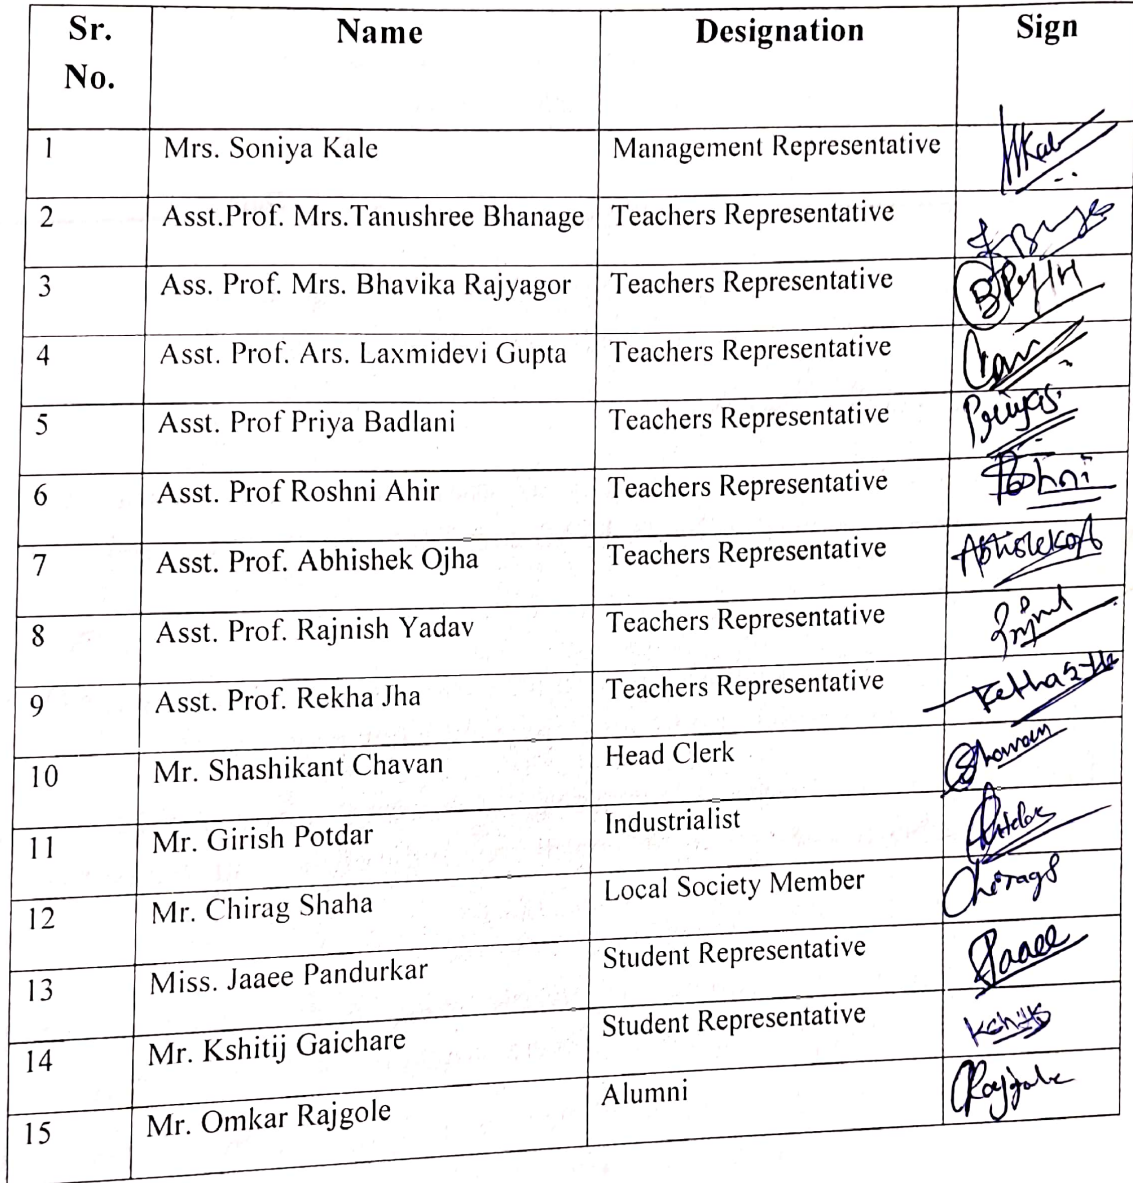 Sr. No. Name Designation Sign
1 Mrs. Soniya Kale Management Representative
2 Asst.Prof. Mrs.Tanushree Bhanage Teachers Representative
3 Ass. Prof. Mrs. Bhavika Rajyagor Teachers Representative
4 Asst. Prof. Ars. Laxmidevi Gupta Teachers Representative
5 Asst. Prof Priya Badlani Teachers Representative
6 Asst. Prof Roshni Ahir Teachers Representative
7 Asst. Prof. Abhishek Ojha Teachers Representative
8 Asst. Prof. Rajnish Yadav Teachers Representative
9 Asst. Prof. Rekha Jha Teachers Representative
10 Mr. Shashikant Chavan Head Clerk
11 Mr. Girish Potdar Industrialist
12 Mr. Chirag Shaha Local Society Member
13 Miss. Jaaee Pandurkar Student Representative
14 Mr. Kshitij Gaichare Student Representative
15 Mr. Omkar Rajgole Alumni